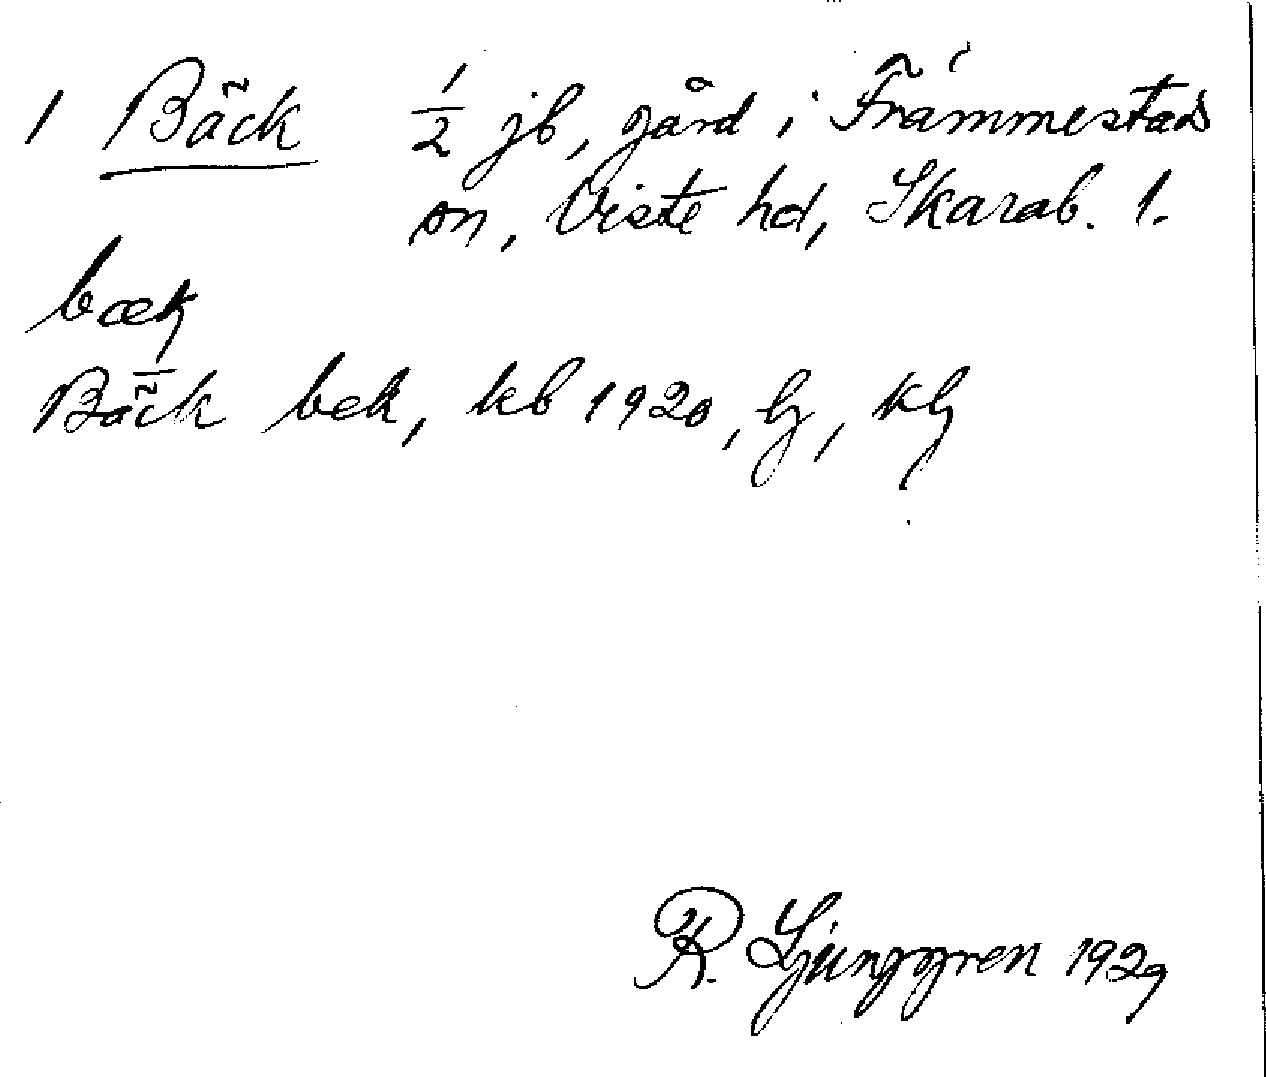 1 Bäck ½ jb, gård i Främmestad
sn, Viste hd, Skarab. l.
bæk
Bäck bek, kb 1920, lj, klj
R. Ljunggren 1929